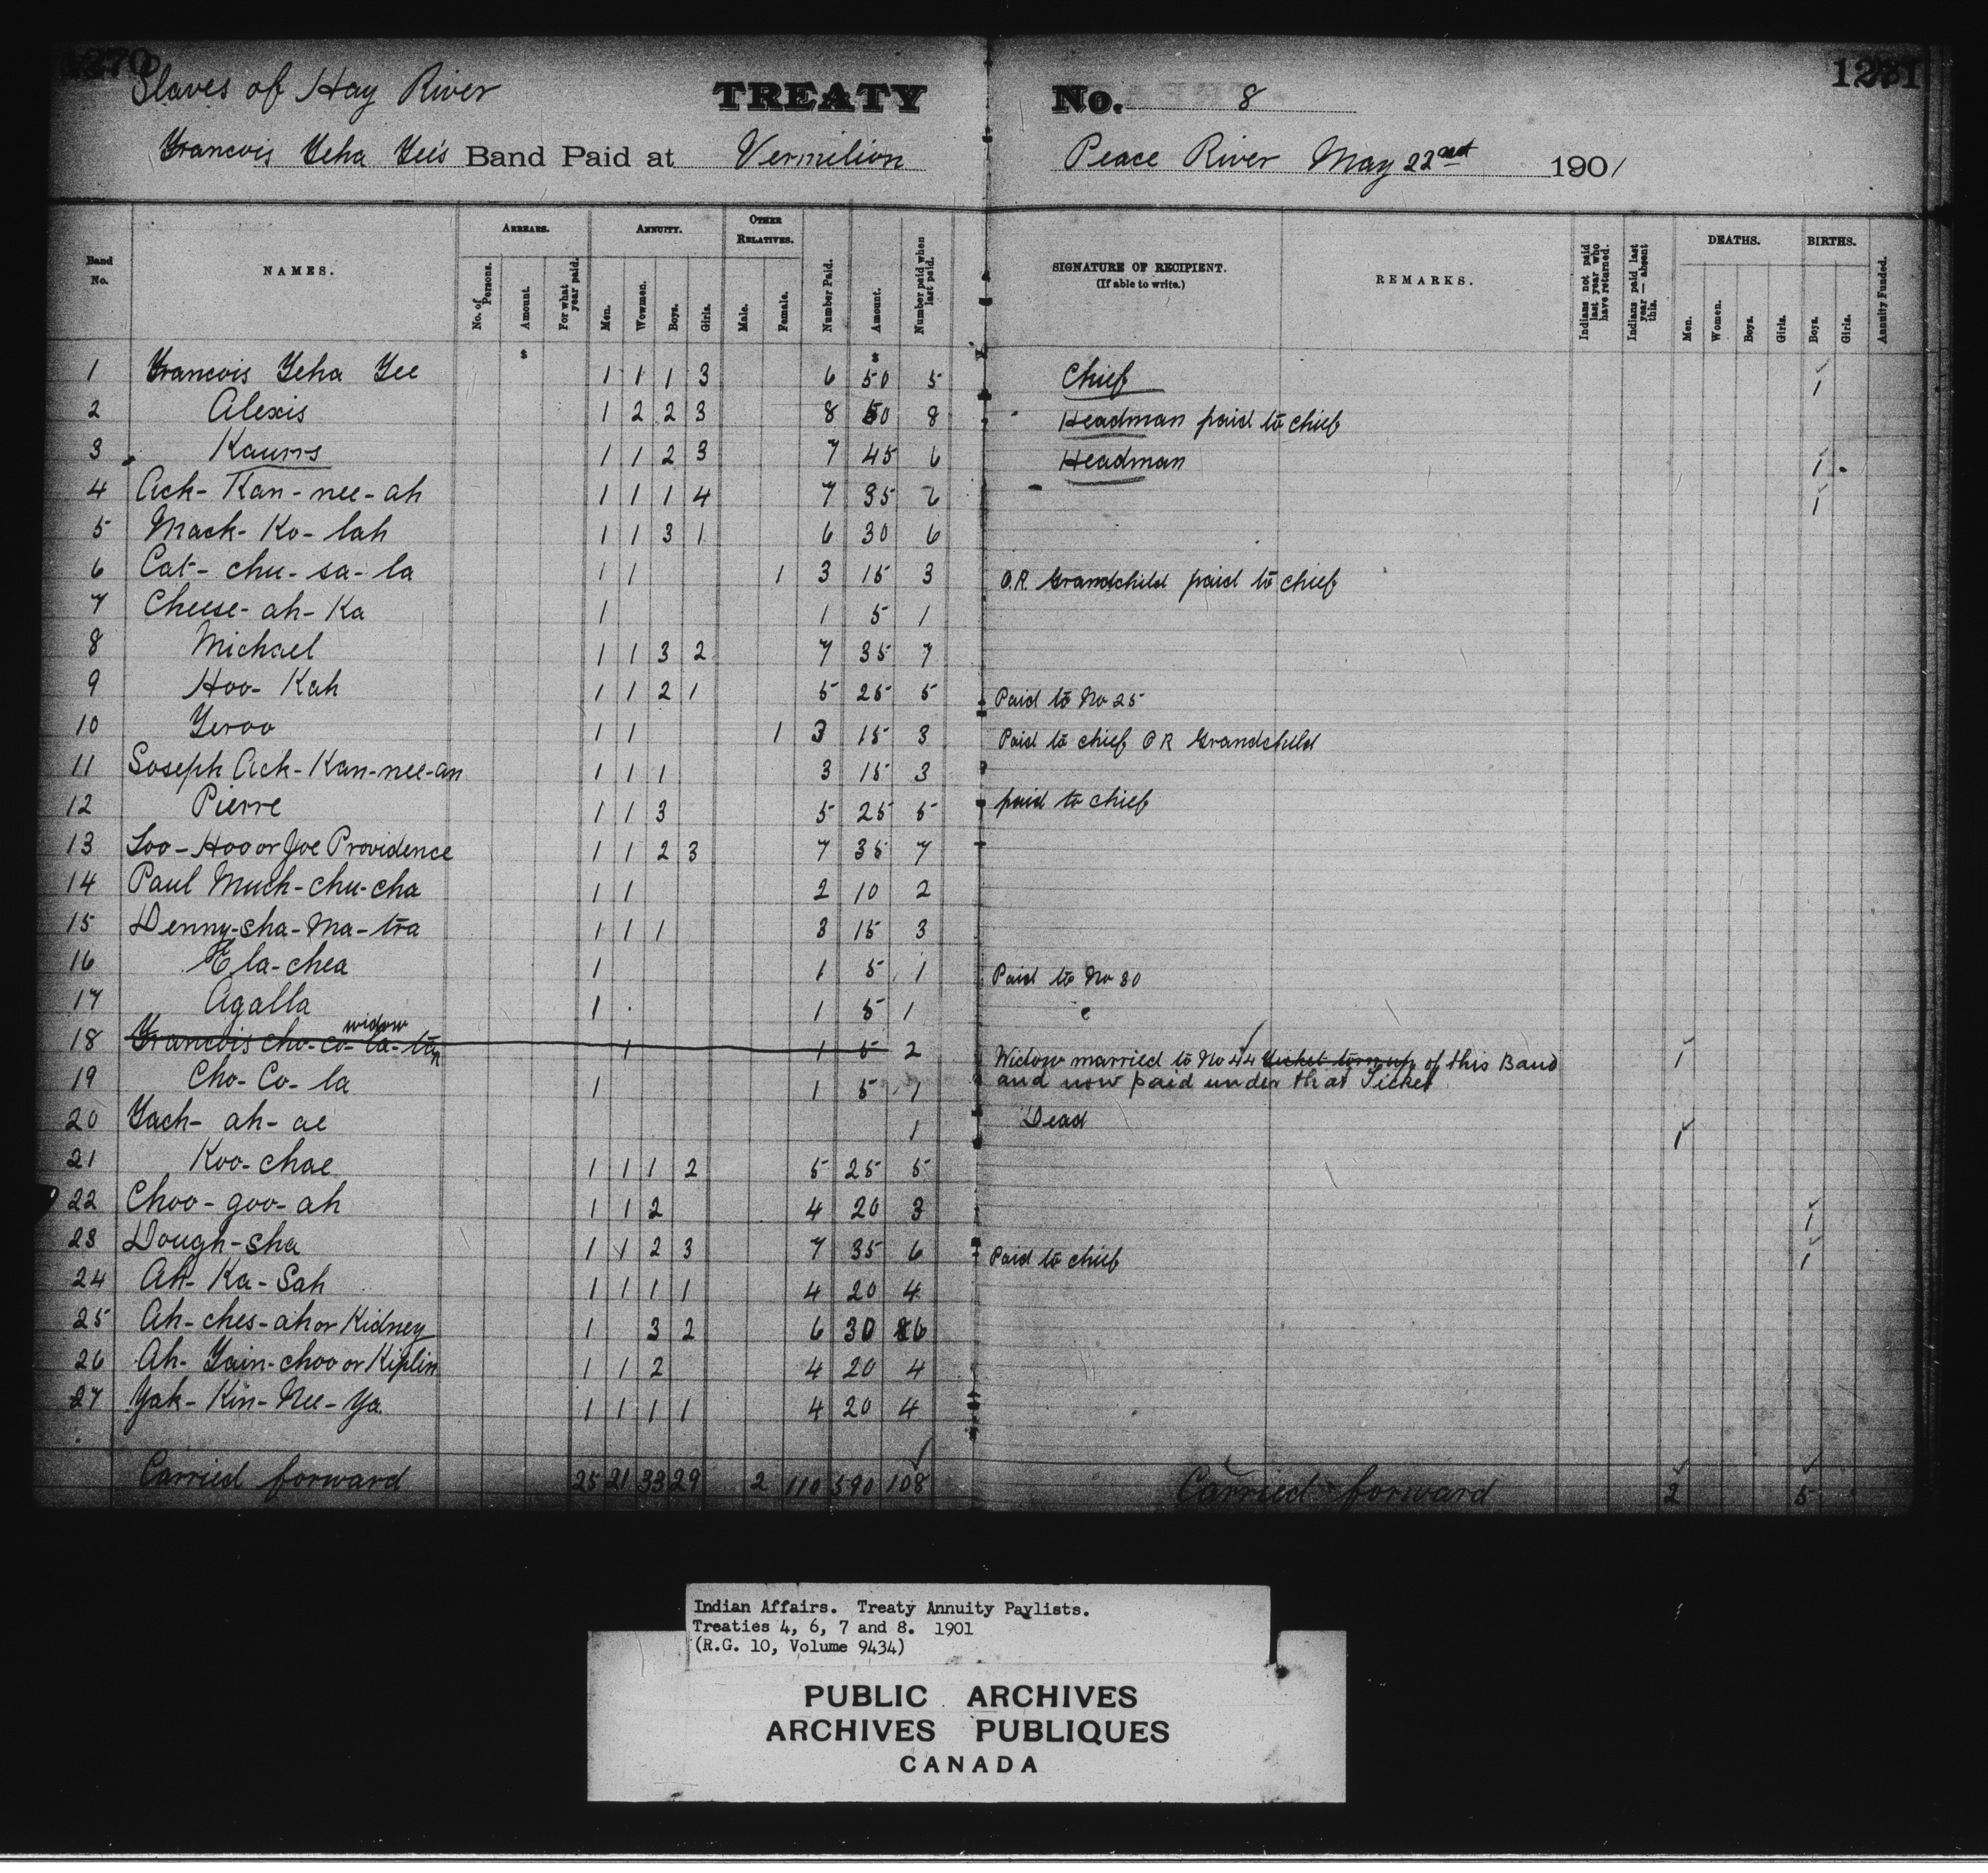 1270
1271
Slaves of Hay River TREATY No. 8
Francois Yeha Yee's Band Paid at Vermilion Peace River May 22nd 1901
Band No.
NAMES.
ARREARS.
No. of Persons.
Amount.
For what year paid.
ANNUITY.
Men.
Wowmen.
Boys.
Girls.
OTHER RELATIVES.
Male.
Female.
Number Paid.
Amount.
Number paid when last paid.
SIGNATURE OF RECIPIENT.
(If able to write.)
REMARKS.
Indians not paid last year who have returned.
Indians paid last year — absent this.
DEATHS.
Men.
Women.
Boys.
Girls.
BIRTHS.
Boys.
Girls.
Annuity Funded.
$ $
1 Francois Yeha Yee 1 1 1 3 6 50 5 Chief 1
2 Alexis 1 2 2 3 8 50 8 Headman paid to chief
3 Kaurrs 1 1 2 3 7 45 6 Headman 1
4 Ack-Kan-nee-ah 1 1 1 4 7 35 6 1
5 Mack-Ko-lah 1 1 3 1 6 30 6
6 Cat-chu-sa-la 1 1 1 3 15 3 O.R. Grandchild paid to chief
7 Cheese-ah-Ka 1 1 5 1
8 Michael 1 1 3 2 7 35 7
9 Hoo-Kah 1 1 2 1 5 25 5 Paid to No 25
10 Yeroo 1 1 1 3 15 3 Paid to chief O R Grandchild
11 Soseph Ack-Kan-nee-an 1 1 1 3 15 3
12 Pierre 1 1 3 5 25 5 paid to chief
13 Loo-Hoo or Joe Providence 1 1 2 3 7 35 7
14 Paul Much-chu-cha 1 1 2 10 2
15 Denny-sha-Ma-tra 1 1 1 3 15 3
16 Ela-chea 1 1 5 1 Paid to No 30
17 Agalla 1 1 5 1
18 Francois cho-co-la-tan widow 1 1 5 2 Widow married to No 44 ticket torn up of this Band 1
19 Cho-Co-la 1 1 5 1 and now paid under that Ticket
20 Yach-ah-ae 1 Dead 1
21 Koo-chae 1 1 1 2 5 25 5
22 Choo-goo-ah 1 1 2 4 20 3 1
23 Dough-sha 1 1 2 3 7 35 6 Paid to chief 1
24 Ah-Ka-Sah 1 1 1 1 4 20 4
25 Ah-ches-ah or Kidney 1 3 2 6 30 6
26 Ah-Yain-choo or Kiplin 1 1 2 4 20 4
27 Yak-Kin-Nee-Ya 1 1 1 1 4 20 4
Carried forward 25 21 33 29 2 110 590 108 Carried forward 2 5
Indian Affairs. Treaty Annuity Paylists.
Treaties 4, 6, 7 and 8. 1901
(R.G. 10, Volume 9434)
PUBLIC ARCHIVES
ARCHIVES PUBLIQUES
CANADA